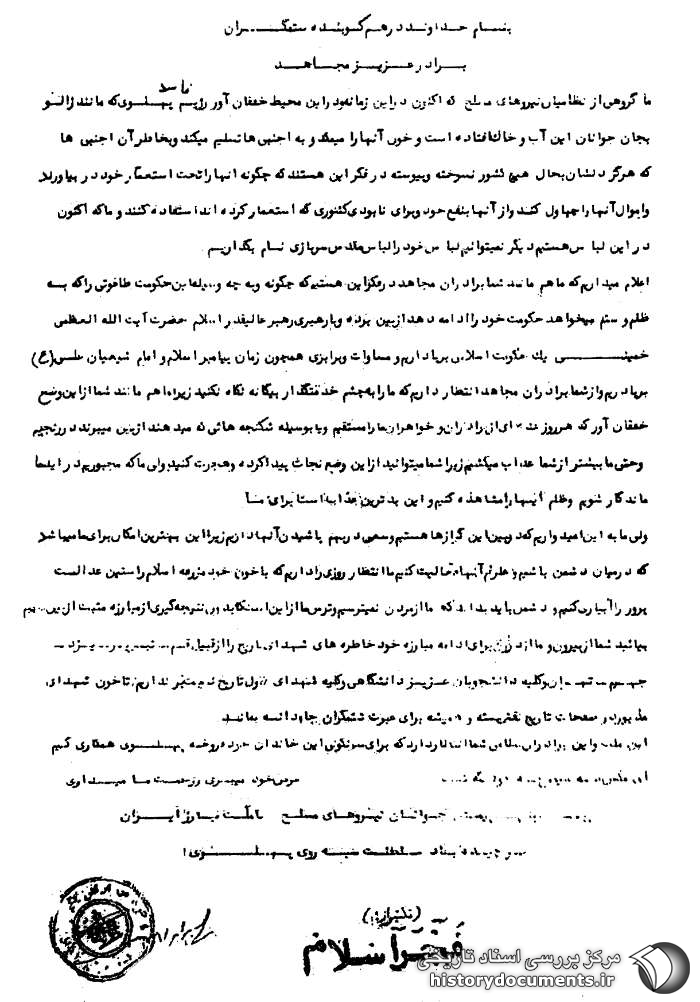 بنـــام خـداونـد د رهـم کـوبنـده ستمگـــران
بــرادر عــزیــز مجــاهــد
فاسد
ما گروهی از نظامیان نیروهای مسلح که اکنون در این زمانه و در این محیط خفقان آور رژیم پهلــوی که مانند زالو
بجان جوانان این آب و خاک افتاده است و خون آنها را میمکد و به اجنبی ها تسلیم میکند و بخاطر آن اجنبی ها
که هرگز دلشان بحال هیچ کشور نسوخته و پیوسته در فکر این هستند که چگونه آنها را تحت استعمار خود در بیاورند
و اموال آنها را چپاول کنند و از آنها بنفع خود و برای نابودی کشوری که استعمار کرده اند استفاده کنند و ما که اکنون
در این لباس هستیم دیگر نمیتوانیم لباس خود را لباس مقدس سربازی نام بگذاریم
اعلام میداریم که ما هم مانند شما برادران مجاهد در فکر این هستیم که چگونه و به چه وسیله این حکومت طاغوتی را که بــه
ظلم و ستم میخواهد حکومت خود را ادامه دهد از بین برده و با رهبری رهبر عالیقدر اسلام حضرت آیت الله العظمی
خمینـــی یک حکومت اسلامی برپا داریم و مساوات و برابری همچون زمان پیامبر اسلام و امام شیعیان علــی (ع)
برپا داریم و از شما برادران مجاهد انتظار داریم که ما را به چشم خدمتگذار بیگانه نگاه نکنید زیرا ما هم مانند شما از این وضع
خفقان آور که هر روز عده ای از برادران و خواهران ما را مستقیم و یا بوسیله شکنجه هائی که میدهند از بین میبرند در رنجیم
و حتی ما بیشتر از شما عذاب میکشیم زیرا شما میتوانید از این وضع نجات پیدا کرده و هجرت کنید ولی ما که مجبوریم در اینجا
ماندگار شویم و ظلم اینها را مشاهده کنیم و این بدترین عذابها است برای مــا
ولی ما به این امید واریم که در بین این گرازها هستیم و سعی در بهم پاشیدن آنها داریم زیرا این بهترین امکان برای ما میباشد
که در میان دشمن باشیم و علیه آنها فعالیت کنیم ما انتظار روزی را داریم که با خون خود مزرعه اسلام راستین عدالت
پرور را آبیاری کنیم و دشمن باید بداند که ما از مردن نمیترسیم و ترس ما از این است که باید بی نتیجه گیری از مبارزه مثبت از بین برویم
بیائید شما از بیرون و ما از درون برای ادامه مبارزه خود خاطره های شهدای تاریخ را از قبیل قم ــ تبــریــز ــ یــزد ــ
جهــرم ــ و کلیه دانشجویان عــزیــز دانشگاهی و کلیه شهدای طول تاریخ تا خون شهدای
مذبور در صفحات تاریخ نقش بسته و همیشه برای عبرت ستمگران جاودانــه بمانــد
این ملت و این برادران نظامی شما انتظار دارد که برای سرنگونی این خاندان خود فروخته پهــلــوی همکاری کنیم
ای مگس عرض خود میبــری و زحمــت مــا میــداری
جــوانــان نیــروهــای مسلــح با ملــت مبــارز ایــران
سلطنــت پهــلــوی !
فَجْرِ اسلام
مرکز بررسی اسناد تاریخی
historydocuments.ir